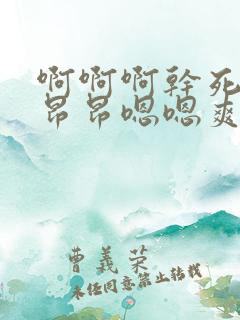 啊啊啊幹死
昂昂嗯嗯爽
曹義荣
未经同意禁止转载